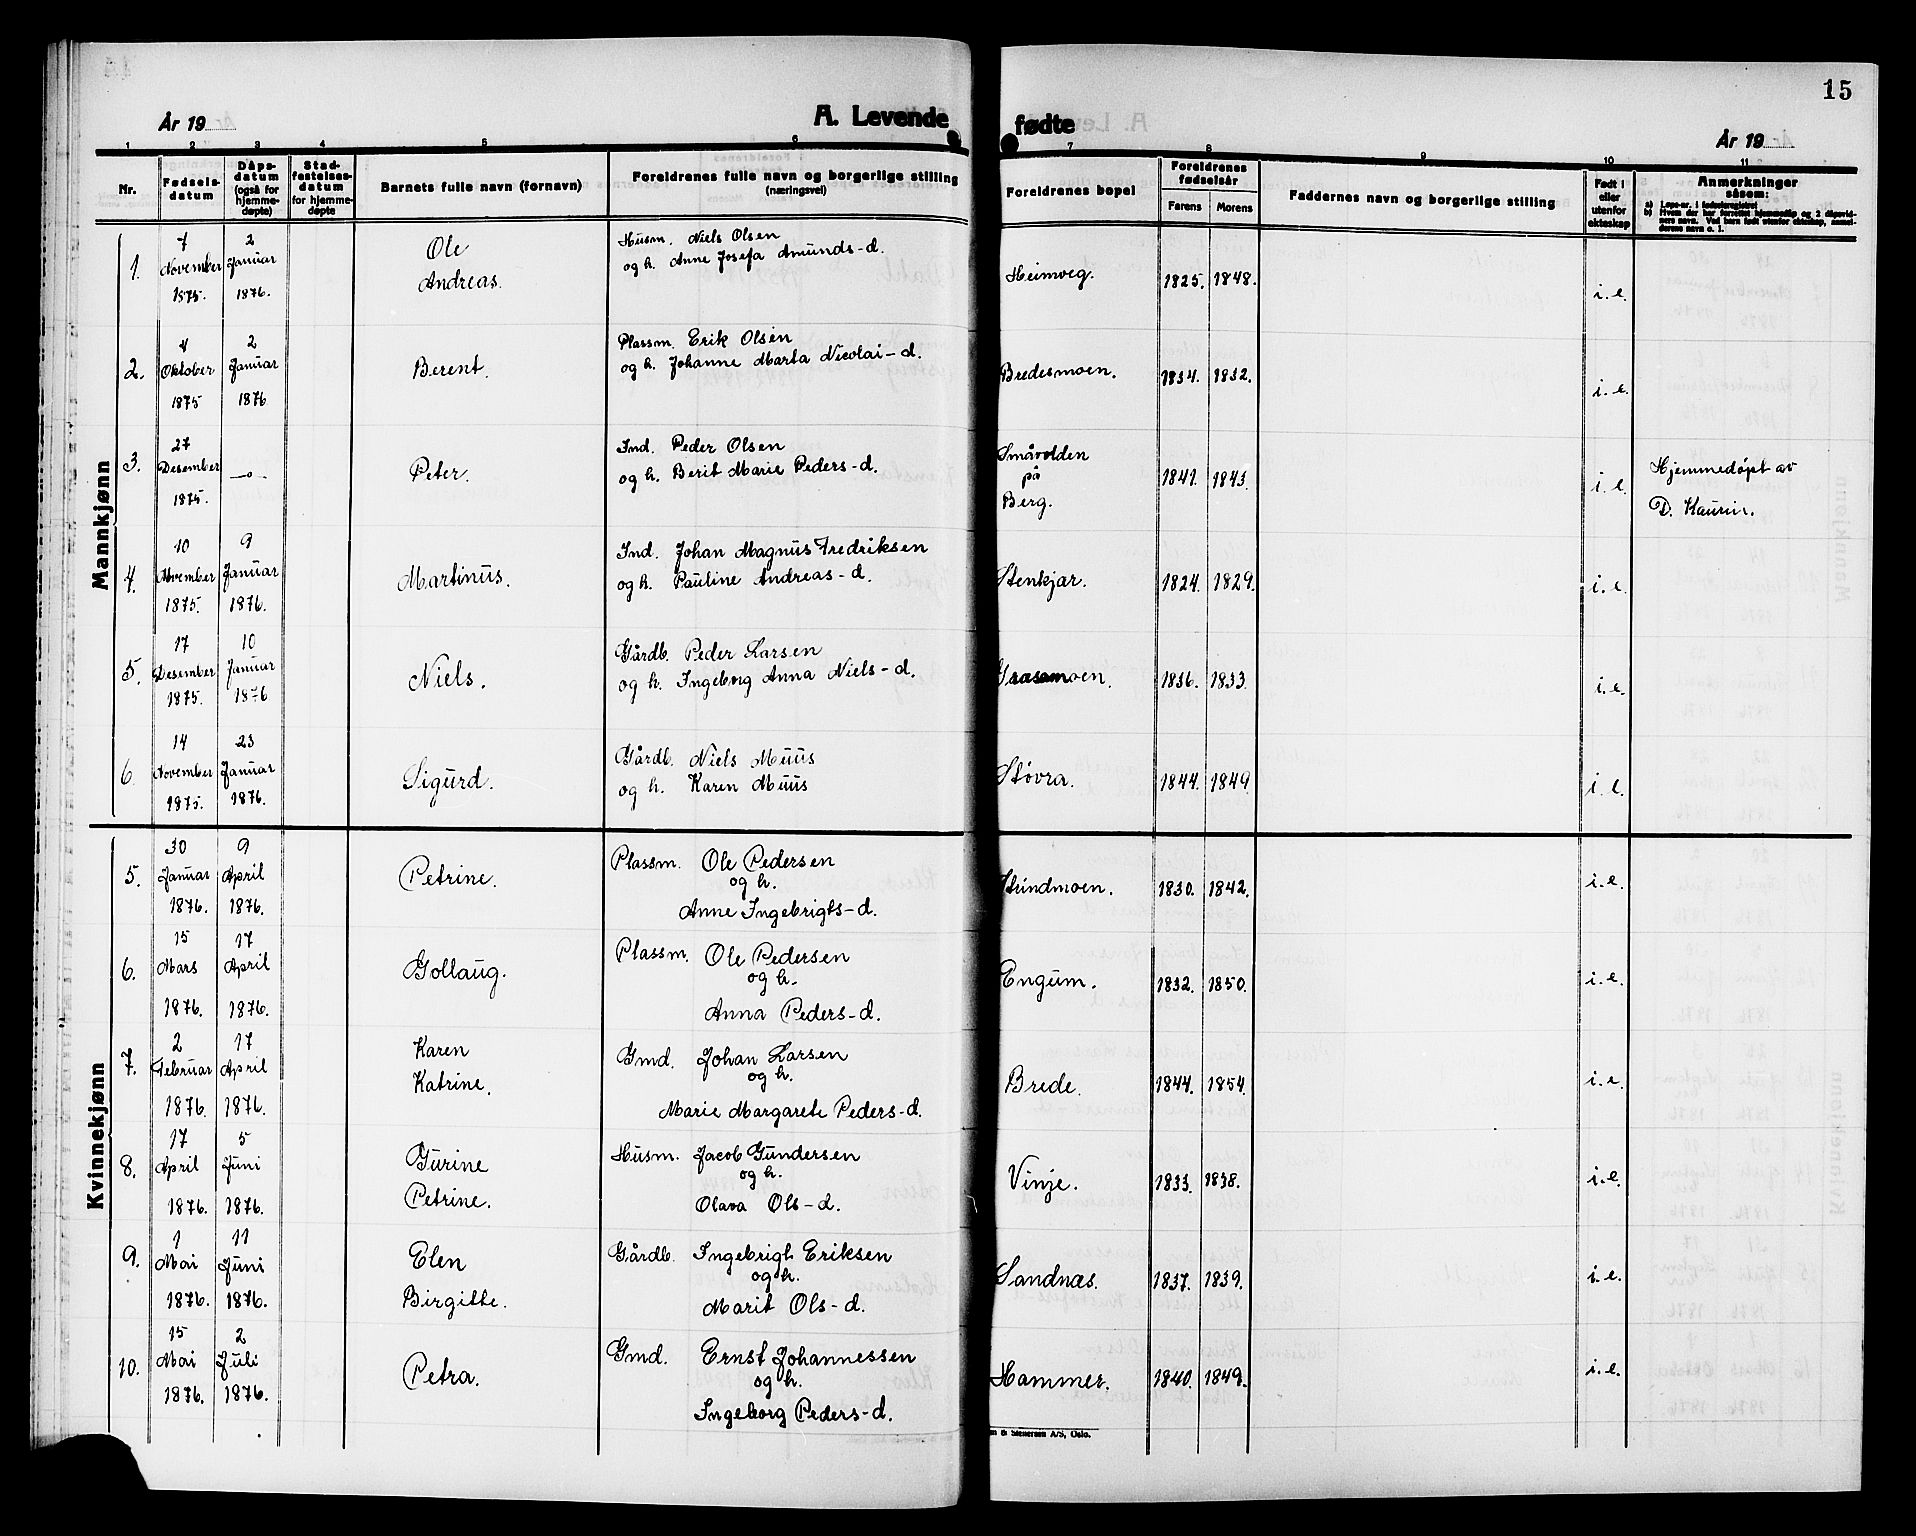 15
År 19
A. Levende fødte
År 19
1 2 3 4 5 6 7 8 9 10 11
Nr.
Fødsels-
datum
Dåps-
datum
(også for
hjemme-
døpte)
Stad-
festelses-
datum
for hjemme-
døpte
Barnets fulle navn (fornavn)
Foreldrenes fulle navn og borgerlige stilling
(næringsvei)
Foreldrenes bopel
Foreldrenes
fødselsår
Farens Morens
Faddernes navn og borgerlige stilling
Født i
eller
utenfor
ekteskap
Anmerkninger
såsom:
a) Løpe-nr. i fødselsregistret
b) Hvem der har forrettet hjemmedåp og 2 dåpsvid-
ners navn. Ved barn født utenfor ekteskap, anmel-
derens navn o. l.
Mannkjønn
1. 7 November 1875. 2 Januar 1876. Ole Andreas. Husm. Niels Olsen
og h. Anne Josefa Amunds-d. Heimveg. 1825. 1848. i.e.
2. 4 Oktober 1875 2 Januar 1876 Berent. Plassm. Erik Olsen
og h. Johanne Marta Nicolai-d. Bredesmoen. 1834. 1832. i.e.
3. 27 Desember 1875. —o— Peter. Ind. Peder Olsen
og h. Berit Marie Peders-d. Småvolden på Berg. 1841. 1843. i.e. Hjemmedøpt av
D. Kaurin.
4. 10 November 1875. 9 Januar 1876. Martinus. Ind. Johan Magnus Fredriksen
og h. Pauline Andreas-d. Stenkjær. 1824. 1829. i.e.
5. 17 Desember 1875. 10 Januar 1876 Niels. Gårdb. Peder Larsen
og h. Ingeborg Anna Niels-d. Græsamoen. 1836. 1833. i.e.
6 14 November 1875. 23 Januar 1876. Sigurd. Gårdb. Niels Muus
og h. Karen Muus Støvra. 1844. 1849. i.e.
Kvinnekjønn
5. 30 Januar 1876. 9 April 1876. Petrine. Plassm. Ole Pedersen
og h.
Anne Ingebrigts-d. Strindmoen. 1830. 1842. i.e.
6. 15 Mars 1876. 17 April 1876. Gollaug. Plassm. Ole Pedersen
og h.
Anna Peders-d. Engum. 1832. 1850. i.e.
7. 2 Februar 1876. 17 April 1876. Karen Katrine. Gmd. Johan Larsen
og h.
Marie Margarete Peders-d. Brede. 1844. 1854. i.e.
8. 17 April 1876. 5 Juni 1876. Gurine Petrine. Husm. Jacob Gundersen
og h.
Olava Ols-d. Vinje. 1833. 1838. i.e.
9. 1 Mai 1876. 11 Juni 1876. Elen Birgitte. Gårdb. Ingebrigt Eriksen
og h.
Marit Ols-d. Sandnæs. 1837. 1839. i.e.
10. 15 Mai 1876. 2 Juli 1876. Petra. Gmd. Ernst Johannessen
og h.
Ingeborg Peders-d. Hammer. 1840. 1849. i.e.
& Stenersen A/S, Oslo.